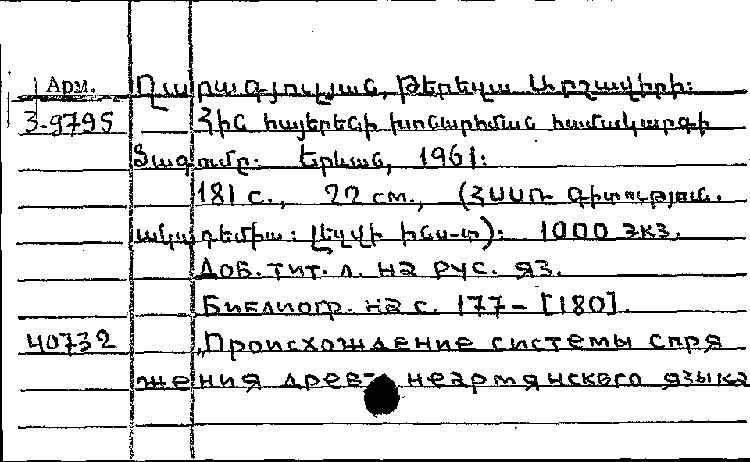 Арм. Ղարագյուլյան, Թերեզա Արշավիրի։
3-9795 Հին հայերենի խոնարհման համակարգի
ծագումը։ Երևան, 1961։
181 с., 22 см., (ՀՍՍՌ Գիտություն.
ակադեմիա։ Լեզվի ինս-տ)։ 1000 экз.
Доб. тит. л. на рус. яз.
Библиогр. на с. 177-[180].
40732 „Происхождение системы спря
жения древ- неармянского языка